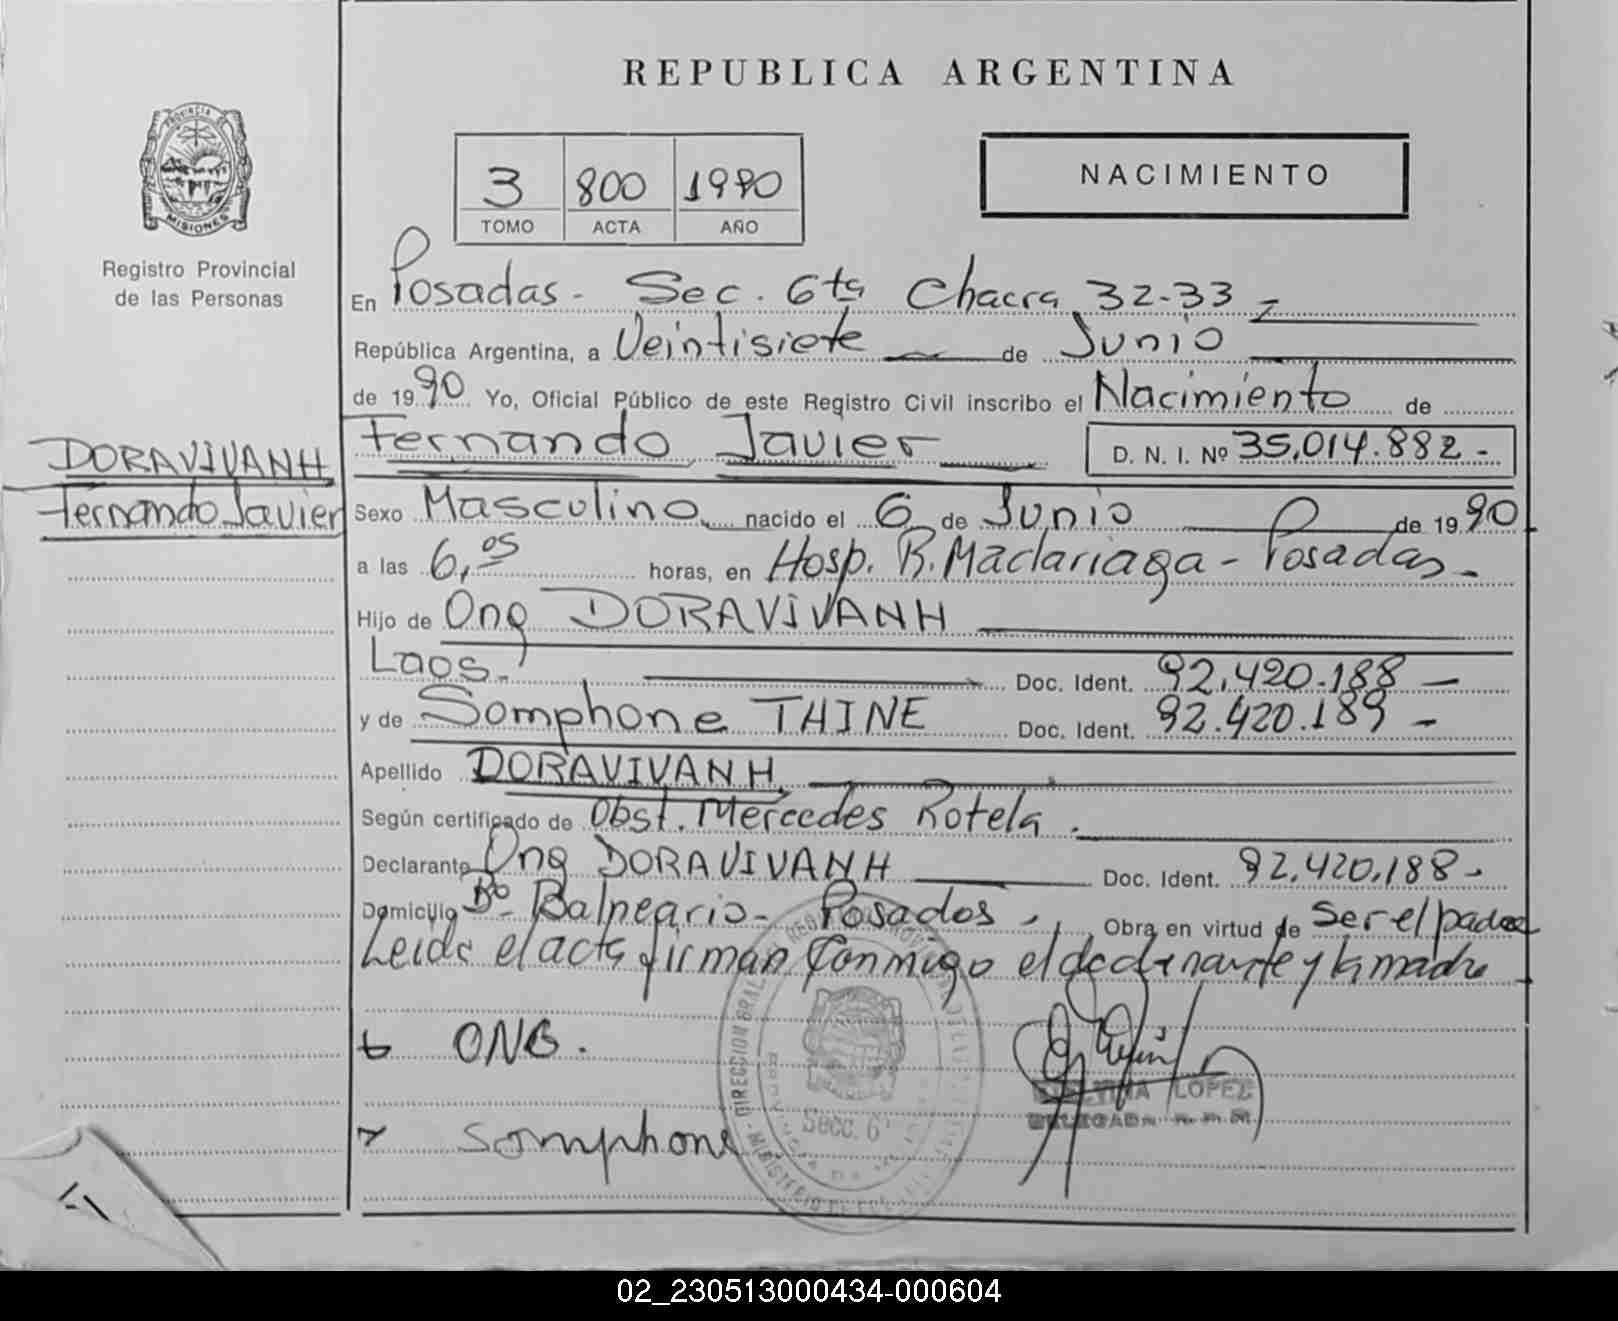 REPUBLICA ARGENTINA
PROVINCIA DE
MISIONES
Registro Provincial
de las Personas
3 800 1990
TOMO ACTA AÑO
NACIMIENTO
En Posadas - Sec. 6ta Chacra 32-33
República Argentina, a Veintisiete de Junio
de 1990 Yo, Oficial Público de este Registro Civil inscribo el Nacimiento de
DORAVIVANH
Fernando Javier
Fernando Javier D. N. I. Nº 35.014.882 -
Sexo Masculino nacido el 6 de Junio de 1990
a las 6,05 horas, en Hosp. R. Madariaga - Posadas -
Hijo de Ong DORAVIVANH
Laos. Doc. Ident. 92.420.188 -
y de Somphone THINE Doc. Ident. 92.420.189 -
Apellido DORAVIVANH
Según certificado de Obst. Mercedes Rotela.
Declarante Ong DORAVIVANH Doc. Ident. 92.420.188 -
Domicilio Bº Balneario - Posadas - Obra en virtud de Ser el padre
Leida el acta firman conmigo el declarante y la madre
ONG.
Somphone
DIRECCION GRAL.
MINISTERIO DE
Secc. 6
LOPEZ
DELEGADA
02_230513000434-000604